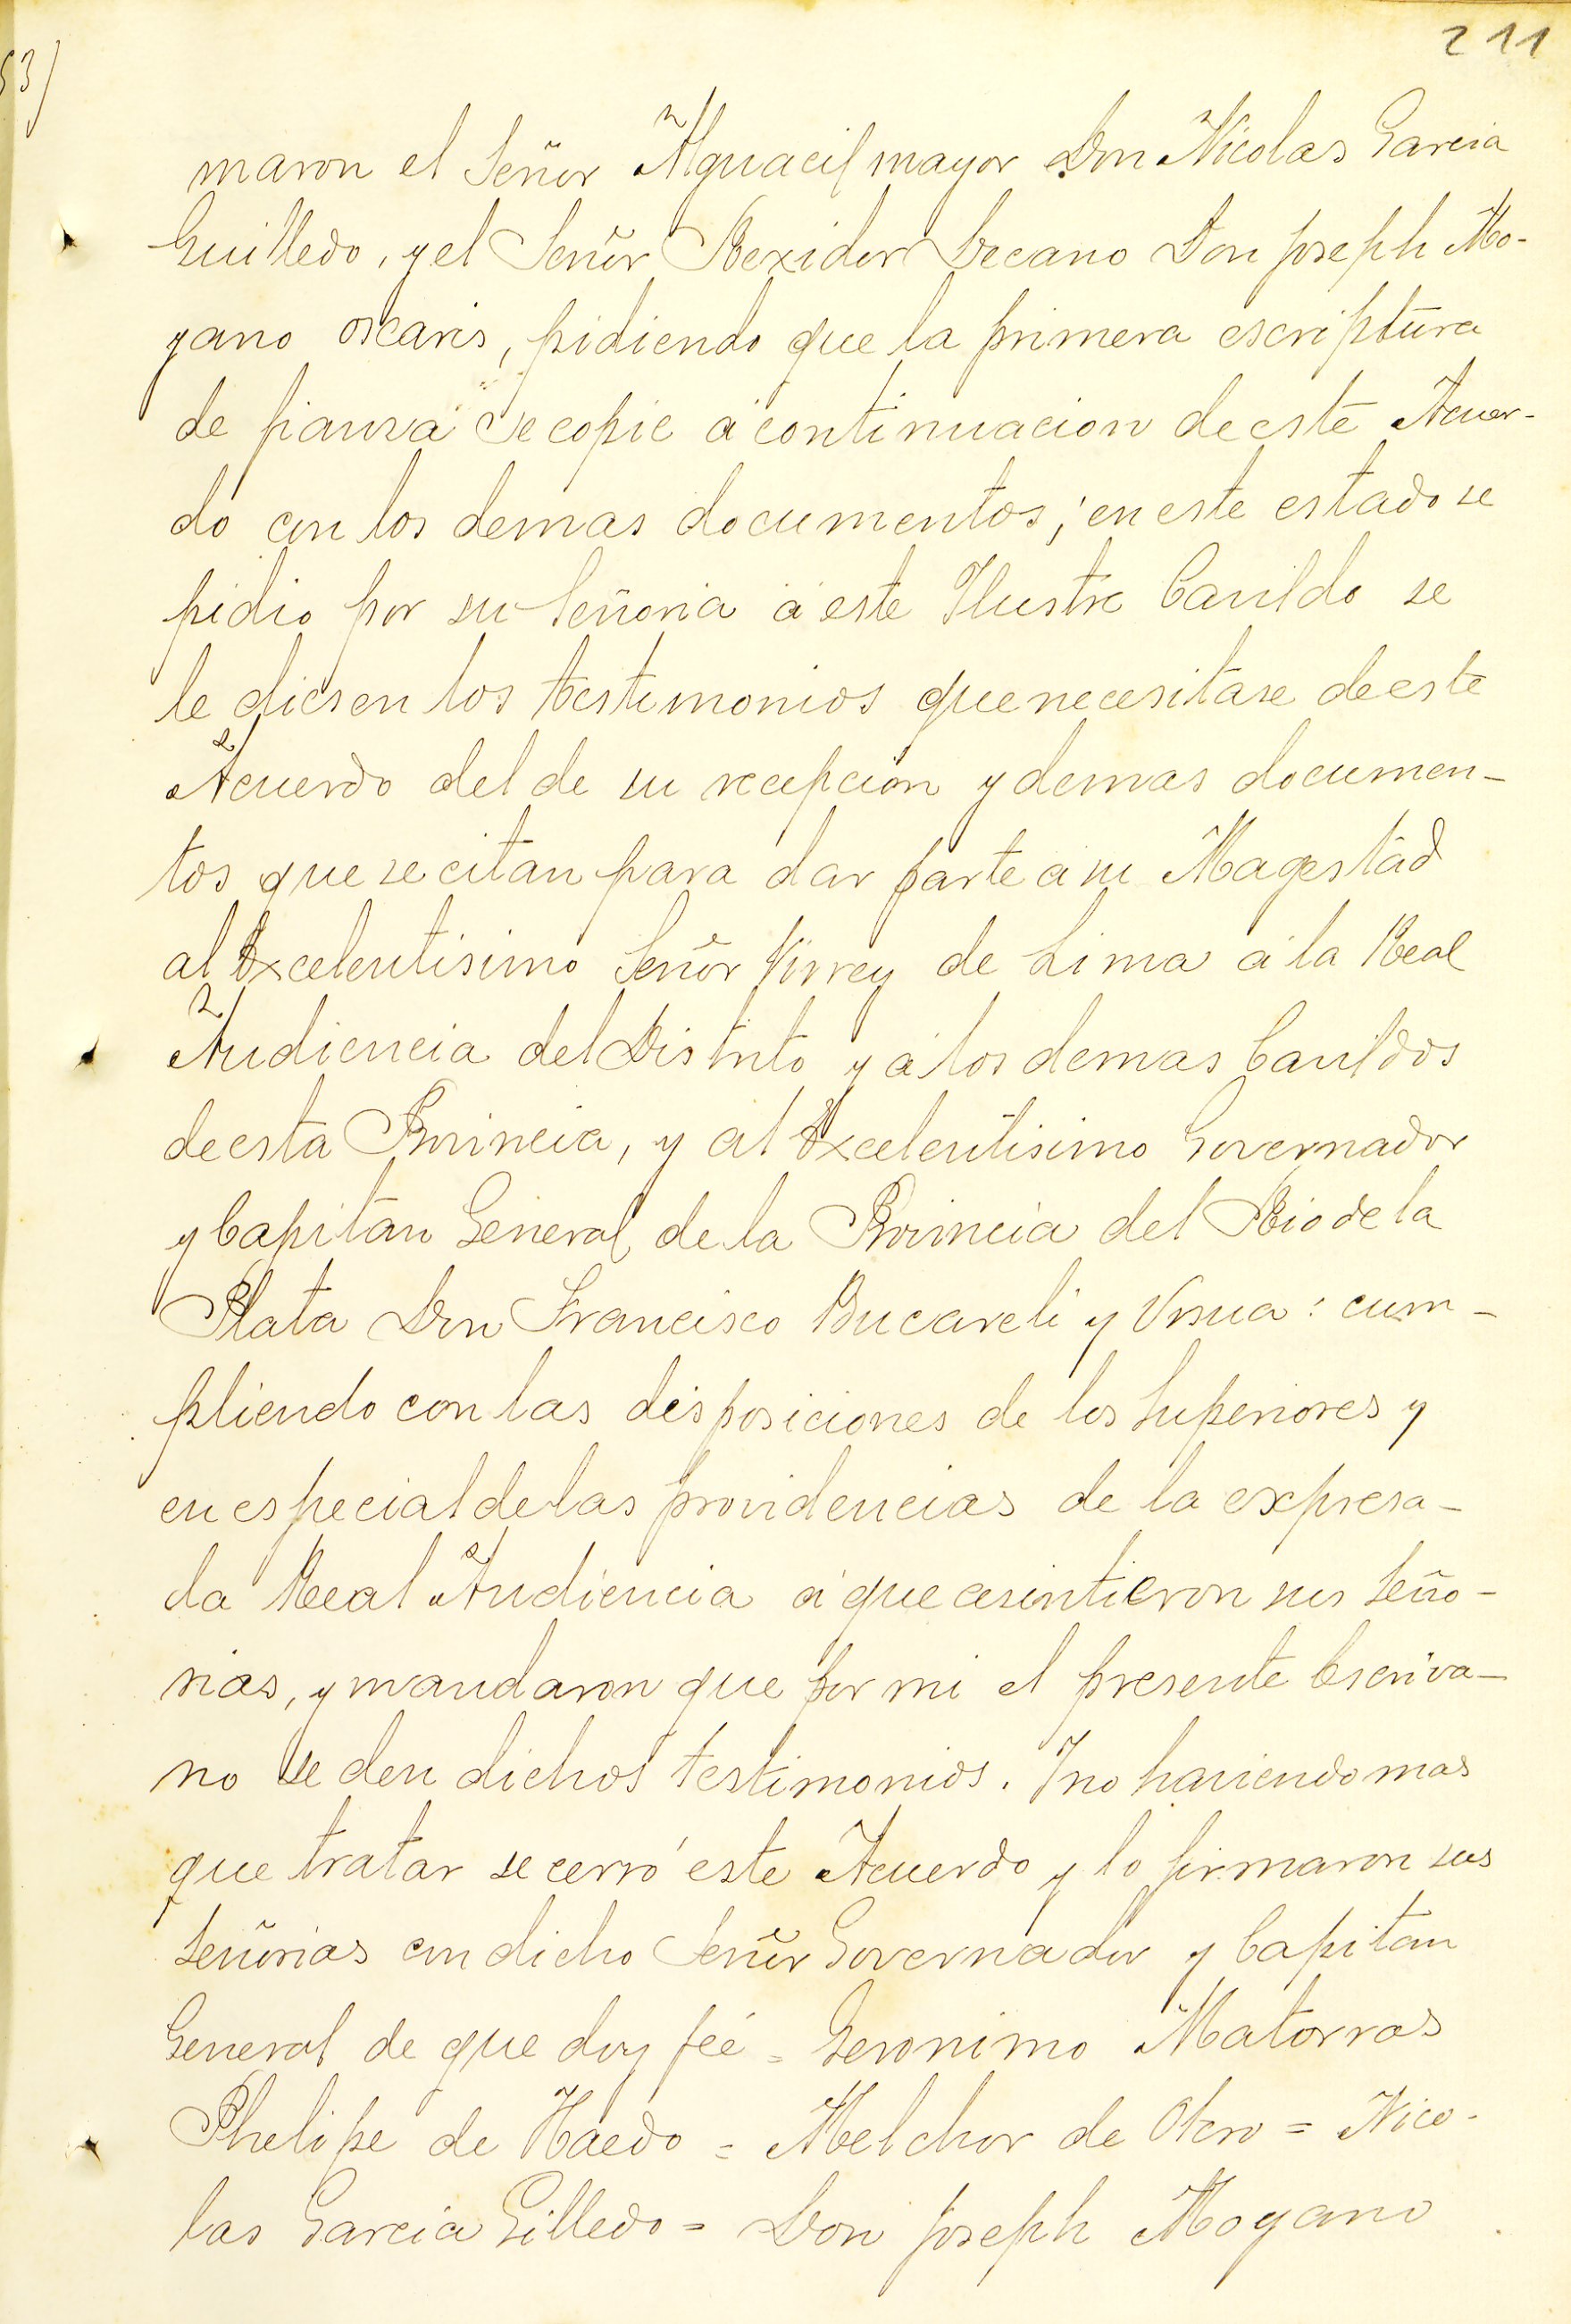 211
53)
maron el Señor Alguacil mayor Don Nicolas Garcia
Guilledo, y el Señor Rexidor Decano Don Joseph Mo-
yano oscaris, pidiendo que la primera escriptura
de fianza se copie á continuacion de este Acuer-
do con los demas documentos; en este estado se
pidio por su Señoria á este Ilustre Cavildo se
le diesen los testimonios que necesitase de este
Acuerdo del de su recepcion y demas documen-
tos que se citan para dar parte a su Magestad
al Excelentisimo Señor Virrey de Lima á la Real
Audiencia del Distrito y á los demas Cavildos
de esta Provincia, y al Excelentisimo Governador
y Capitan General de la Provincia del Rio de la
Plata Don Francisco Bucareli y Vrsua: cum-
pliendo con las disposiciones de los Superiores y
en especial de las providencias de la expresa-
da Real Audiencia á que asintieron sus Seño-
rias, y mandaron que por mi el presente Escriva-
no se den dichos testimonios. Y no haviendo mas
que tratar se cerró este Acuerdo y lo firmaron sus
Señorias con dicho Señor Governador y Capitan
General de que doy feé = Geronimo Matorras
Phelipe de Haedo = Melchor de Otero = Nico-
las Garcia Gilledo = Don Joseph Moyano